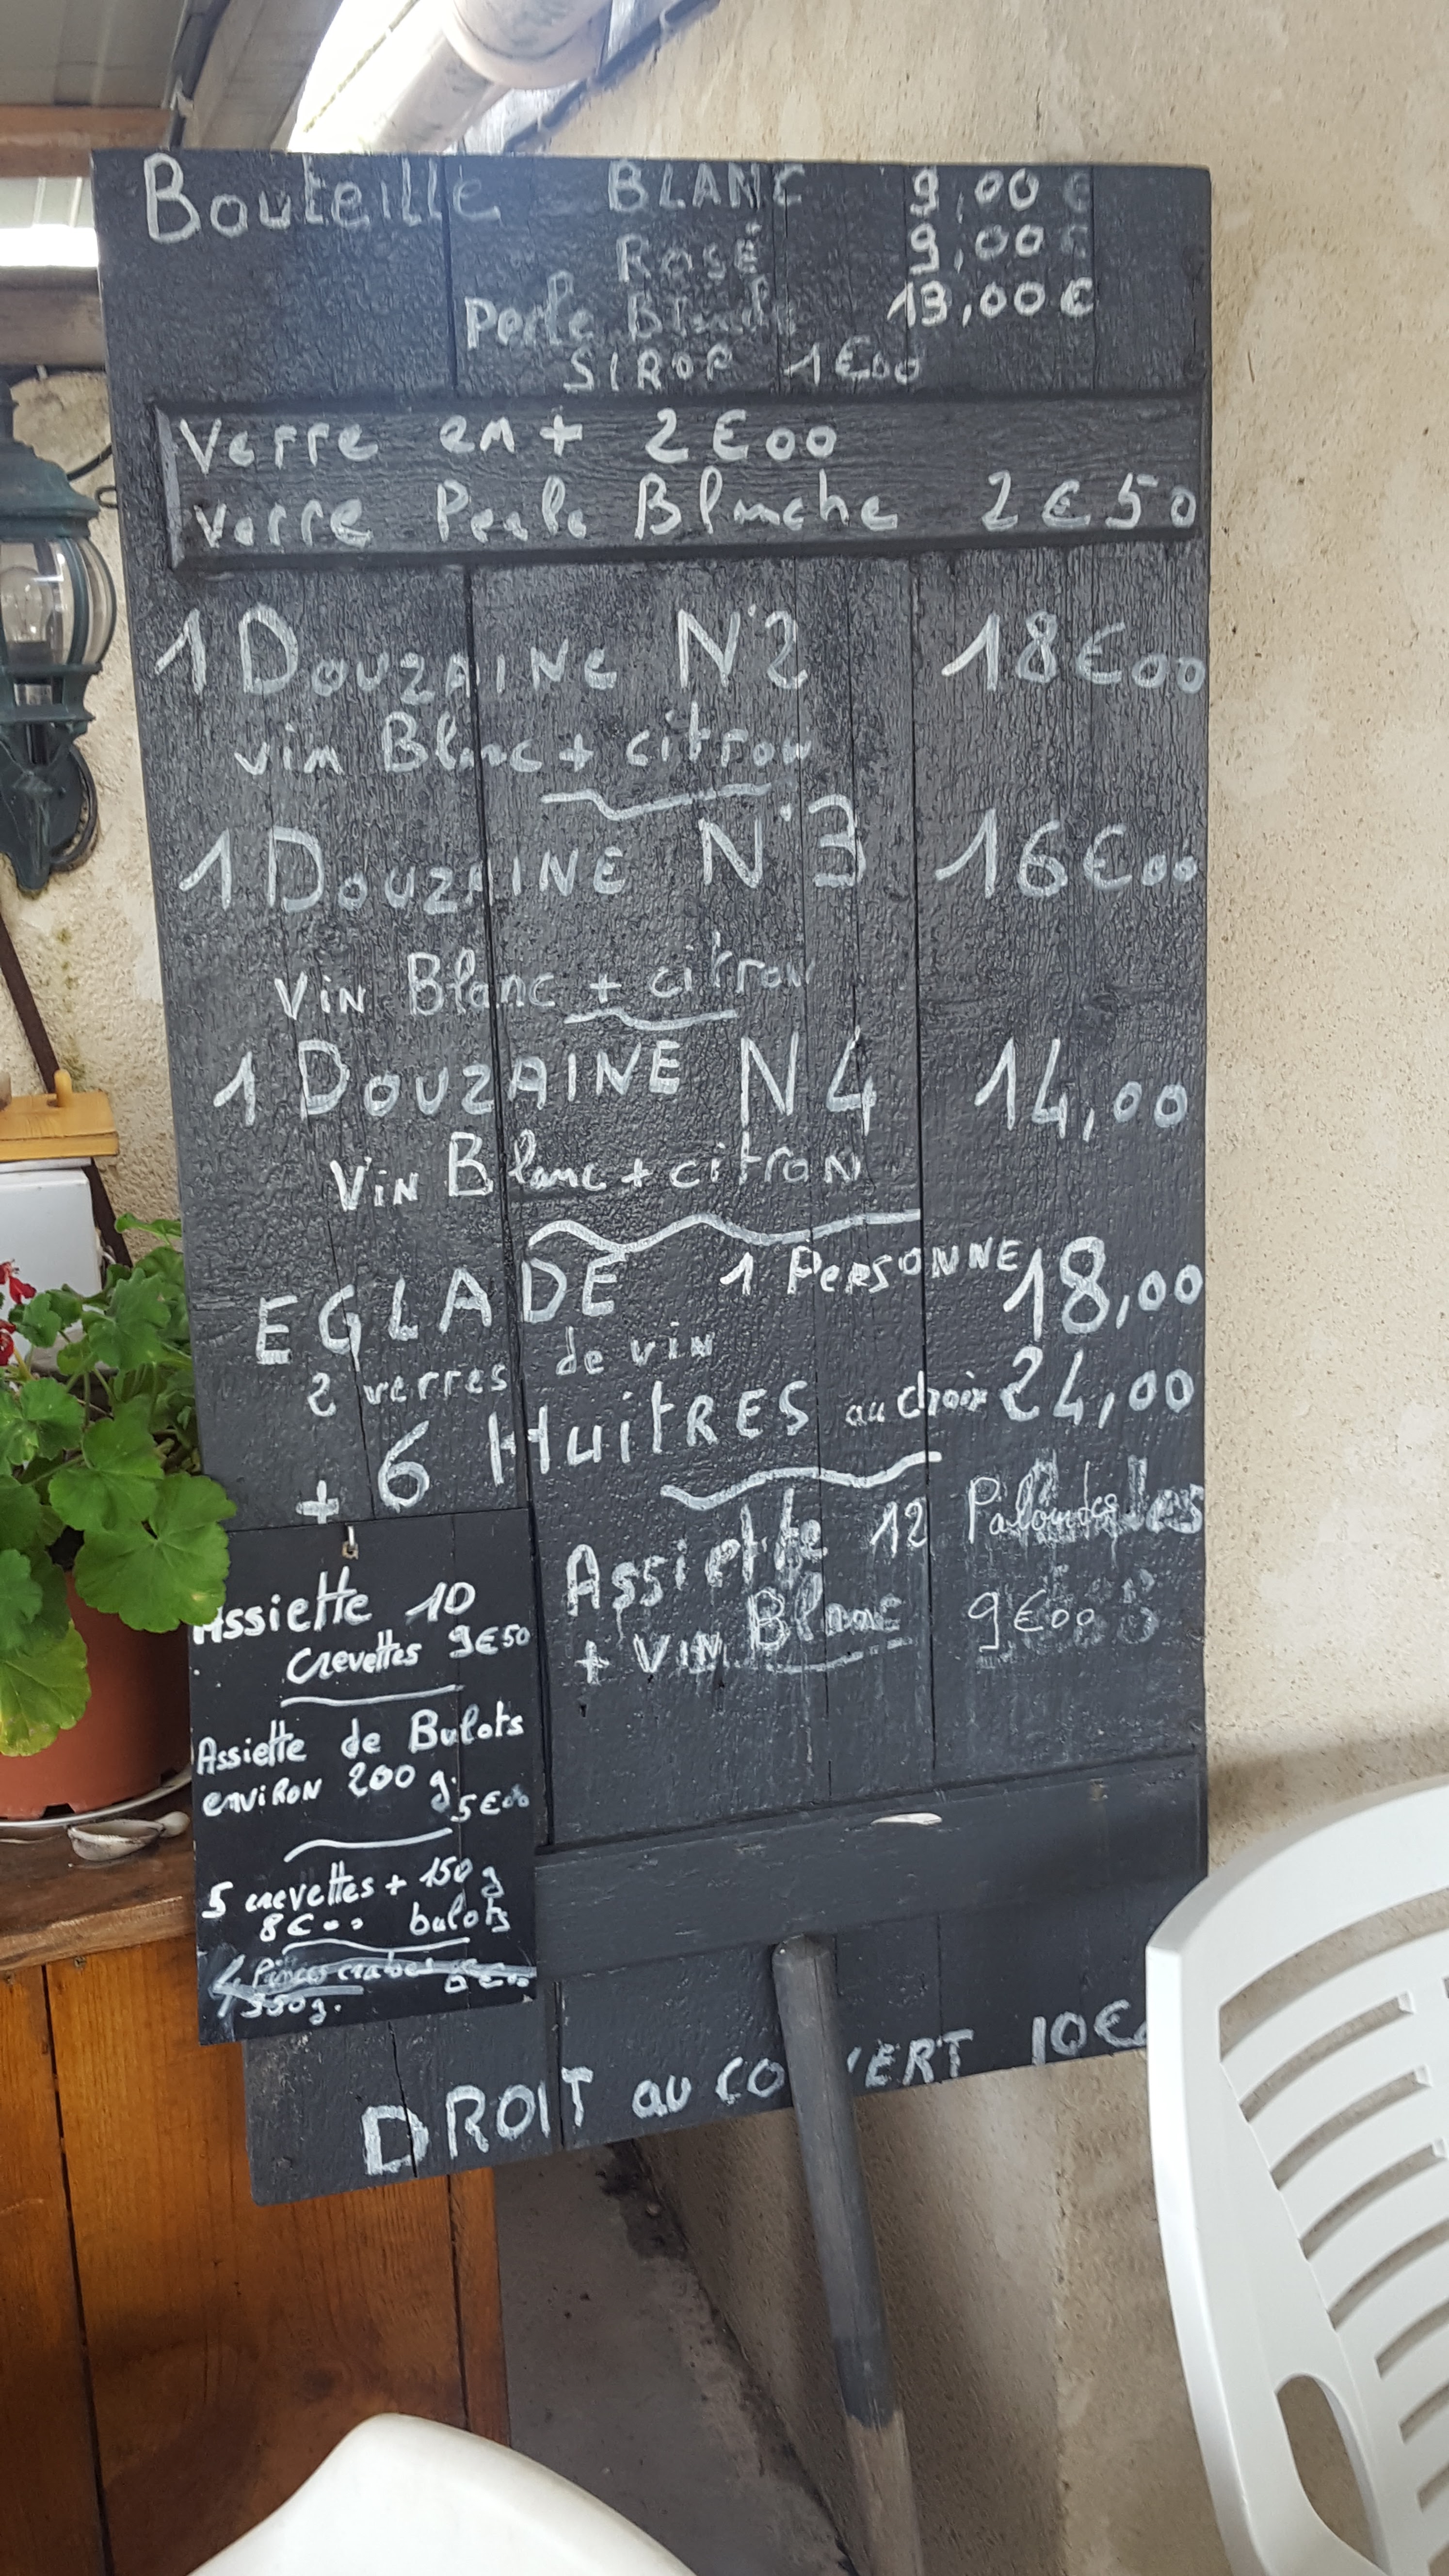 Bouteille BLANC 9,00 €
ROSÉ 9,00 €
Perle Blanche 13,00 €
SIROP 1€00
Verre en + 2€00
verre Perle Blanche 2€50
1 DOUZAINE N°2 18€00
vin Blanc + citron
1 DOUZAINE N°3 16€00
VIN Blanc + citron
1 DOUZAINE N 4 14,00
VIN Blanc + citron
EGLADE 1 PERSONNE 18,00
2 verres de vin
+ 6 HuitRES au choix 24,00
Assiette 12 Palourdes
+ VIN Blanc 9€00
Assiette 10
Crevettes 9€50
Assiette de Bulots
environ 200 g.
5€00
5 crevettes + 150 g
8€00 bulots
4 Pinces crabes 8€00
350g.
DROIT au COUVERT 10€